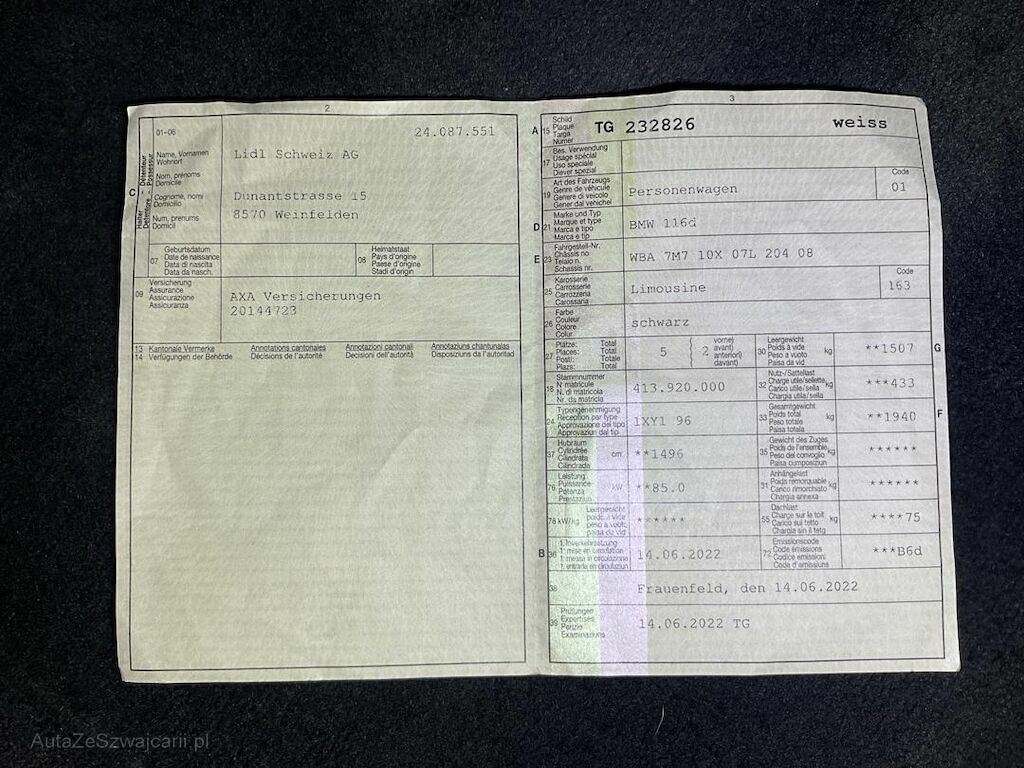 2
01-06
24.087.551
C
Halter Détenteur
Detentore Possessur
Name, Vornamen
Wohnort
Nom, prénoms
Domicile
Cognome, nomi
Domicilio
Num, prenums
Domicil
Lidl Schweiz AG
Dunantstrasse 15
8570 Weinfelden
07
Geburtsdatum
Date de naissance
Data di nascita
Data da nasch.
08
Heimatstaat
Pays d'origine
Paese d'origine
Stadi d'origin
09
Versicherung
Assurance
Assicurazione
Assicuranza
AXA Versicherungen
20144723
13 Kantonale Vermerke Annotations cantonales Annotazioni cantonali Annotaziuns chantunalas
14 Verfügungen der Behörde Décisions de l'autorité Decisioni dell'autorità Disposiziuns da l'autoritad
3
A 15
Schild
Plaque
Targa
Numer
TG 232826 weiss
17
Bes. Verwendung
Usage spécial
Uso speciale
Diever spezial
19
Art des Fahrzeugs
Genre de véhicule
Genere di veicolo
Gener dal vehichel
Personenwagen
Code
01
D 21
Marke und Typ
Marque et type
Marca e tipo
Marca e tip
BMW 116d
E 23
Fahrgestell-Nr.
Châssis no
Telaio n.
Schassis nr.
WBA 7M7 10X 07L 204 08
25
Karosserie
Carrosserie
Carrozzeria
Carossaria
Limousine
Code
163
26
Farbe
Couleur
Colore
Colur
schwarz
27
Plätze: Total
Places: Total
Posti: Totale
Plazs: Total
5
2
vorne)
avant)
anteriori)
davant)
30
Leergewicht
Poids à vide
Peso a vuoto
Paisa da vid
kg
**1507
G
18
Stammnummer
N matricule
N. di matricola
Nr. da matricla
413.920.000
32
Nutz-/Sattellast
Charge utile/sellette
Carico utile/sella
Chargia utila/sella
kg
***433
24
Typengenehmigung
Réception par type
Approvazione del tipo
Approvaziun dal tip
1XY1 96
33
Gesamtgewicht
Poids total
Peso totale
Paisa totala
kg
**1940
F
37
Hubraum
Cylindrée
Cilindrata
Cilindrada
cm³
**1496
35
Gewicht des Zuges
Poids de l'ensemble
Peso del convoglio
Paisa cumposiziun
kg
******
76
Leistung
Puissance
Potenza
Prestaziun
kW
**85.0
31
Anhängelast
Poids remorquable
Carico rimorchiato
Chargia annexa
kg
******
78 kW/kg
Leergewicht
poids à vide
peso a vuoto
paisa da vid
******
55
Dachlast
Charge sur le toit
Carico sul tetto
Chargia sin il tetg
kg
****75
B 36
1. Inverkehrsetzung
1. mise en circulation
1. messa in circolazione
1. entrada en circulaziun
14.06.2022
72
Emissionscode
Code émissions
Codice emissioni
Code d'emissiuns
***B6d
38
Frauenfeld, den 14.06.2022
39
Prüfungen
Expertises
Perizie
Examinaziuns
14.06.2022 TG
AutaZeSzwajcarii.pl